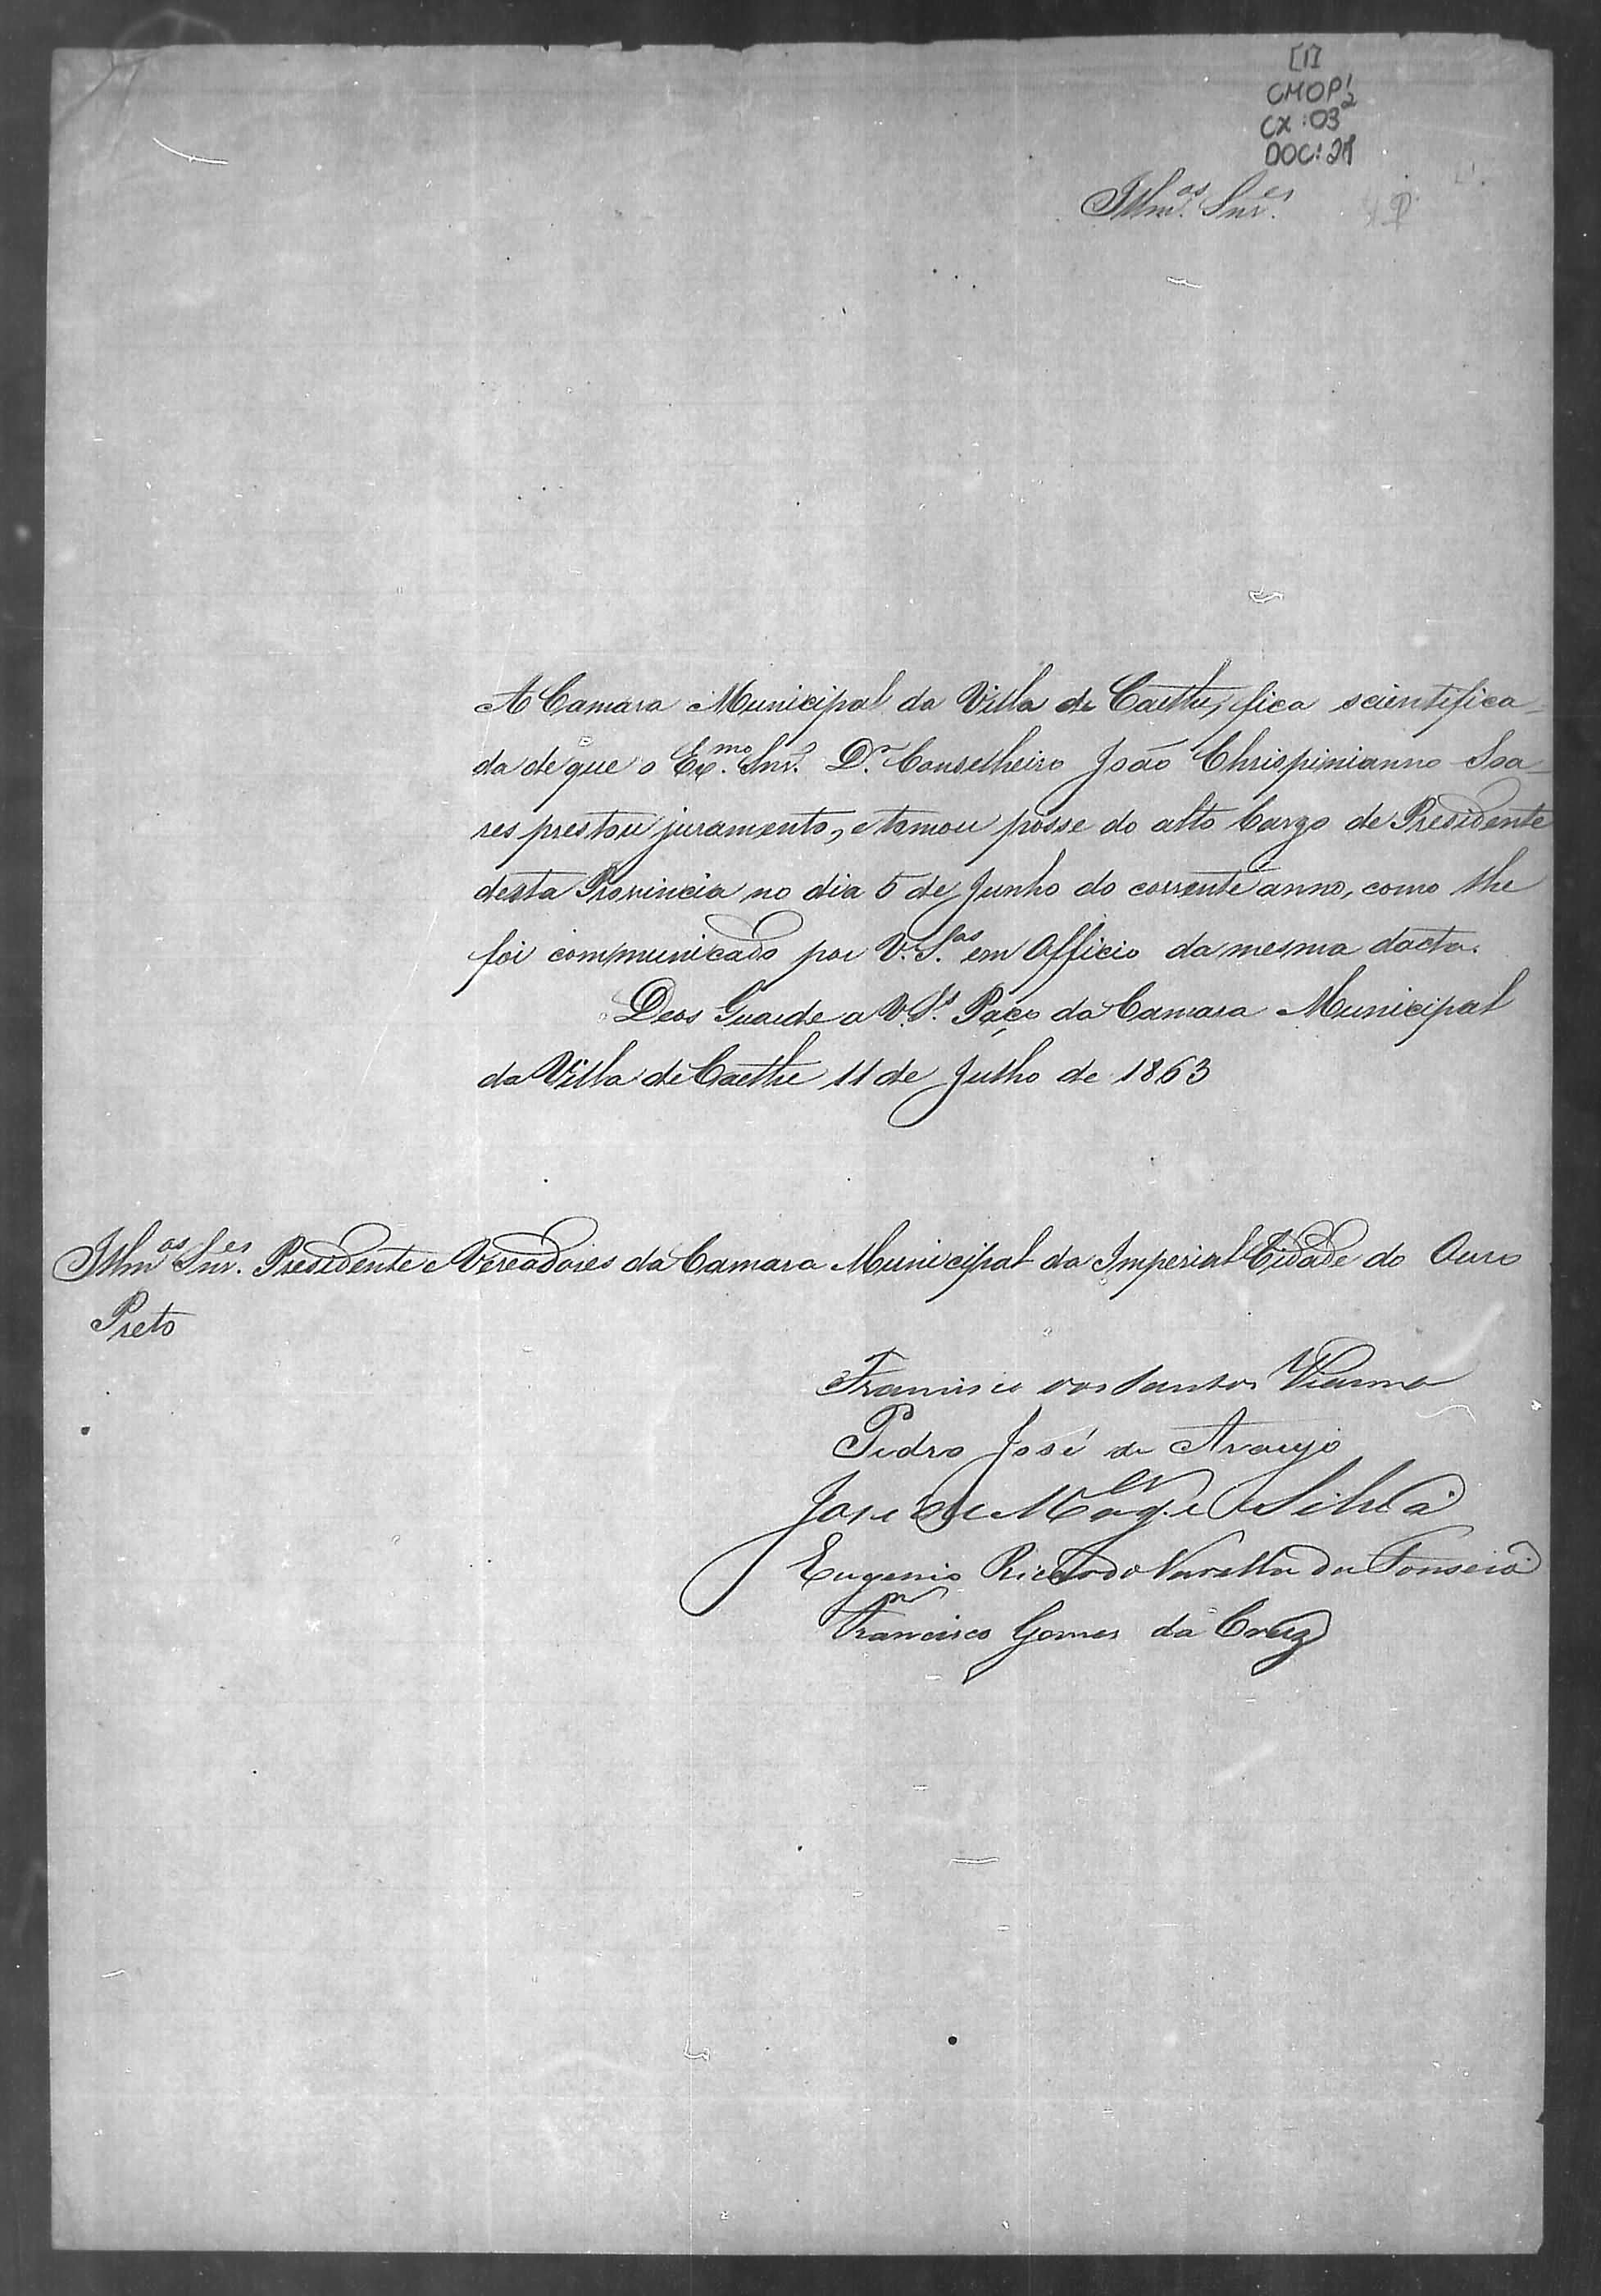 [1]
CMOP 1/2
CX: 03
DOC: 28
Illm.os Snr.es
A Camara Municipal da Villa de Caethe, fica scientifica-
da de que o Ex.mo Snr. D.r Conselheiro João Chrispinianno Soa-
res prestou juramento, e tomou posse do alto Cargo de Presidente
desta Provincia no dia 5 de Junho do corrente anno, como lhe
foi communicado por V. S.as em Officio da mesma dacta.
Deos Guarde a V. S.s Paço da Camara Municipal
da Villa de Caethe 11 de Julho de 1863
Illm.os Snr.es Presidente e Vereadores da Camara Municipal da Imperial Cidade do Ouro
Preto
Francisco dos Santos Vianna
Pedro José de Araujo
José de Mag.es e Silva
Eugenio Ricardo Varella da Fonseca
Francisco Gomes da Cruz